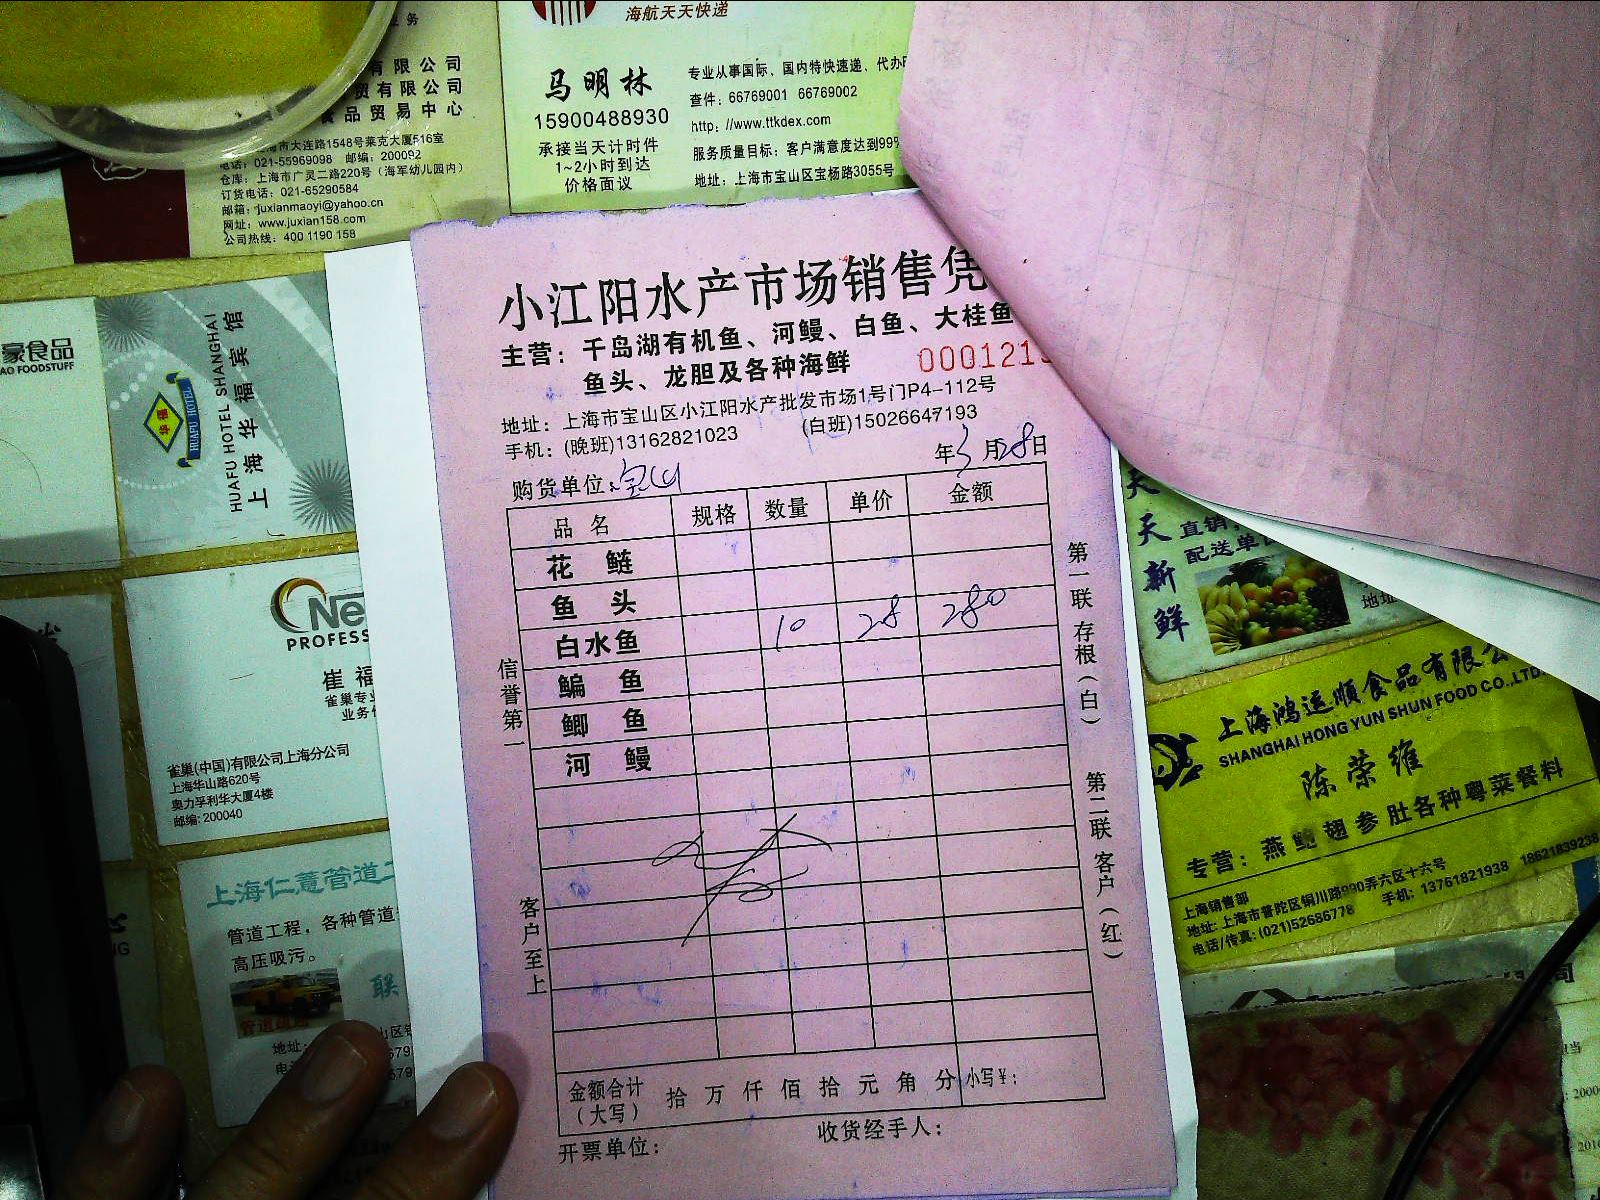 务
有限公司
贸有限公司
食品贸易中心
海市大连路1548号莱克大厦516室
电话：021-55969098 邮编：200092
仓库：上海市广灵二路220号（海军幼儿园内）
订货电话：021-65290584
邮箱：juxianmaoyi@yahoo.cn
网址：www.juxian158.com
公司热线：400 1190 158
海航天天快递
马明林
15900488930
承接当天计时件
1~2小时到达
价格面议
专业从事国际、国内特快速递、代办
查件：66769001 66769002
http: //www.ttkdex.com
服务质量目标：客户满意度达到99%
地址：上海市宝山区宝杨路3055号
豪食品
AO FOODSTUFF
华福
HUAFU HOTEL
HUAFU HOTEL SHANGHAI
上海华福宾馆
Ne
PROFESS
崔福
雀巢专业
业务
雀巢(中国)有限公司上海分公司
上海华山路620号
奥力孚利华大厦4楼
邮编: 200040
上海仁薏管道工
管道工程，各种管道
高压吸污。
联
管道疏通
地址：
山区
小江阳水产市场销售凭
主营：千岛湖有机鱼、河鳗、白鱼、大桂鱼
鱼头、龙胆及各种海鲜
0001213
地址：上海市宝山区小江阳水产批发市场1号门P4-112号
手机：(晚班)13162821023 (白班)15026647193
年3月28日
购货单位：宝山
品名 规格 数量 单价 金额
花鲢
鱼头
白水鱼 10 28 280
鳊鱼
鲫鱼
河鳗
金额合计（大写） 拾万仟佰拾元角分 小写￥：
开票单位： 收货经手人：
信誉第一
客户至上
第一联 存根（白）
第二联 客户（红）
天天新鲜
直销，
配送单
地址
上海鸿运顺食品有限公
SHANGHAI HONG YUN SHUN FOOD CO.,LTD.
陈荣维
专营：燕鲍翅参肚各种粤菜餐料
上海销售部
地址: 上海市普陀区铜川路990弄六区十六号
电话/传真: (021)52686778 手机：13761821938 18621839238